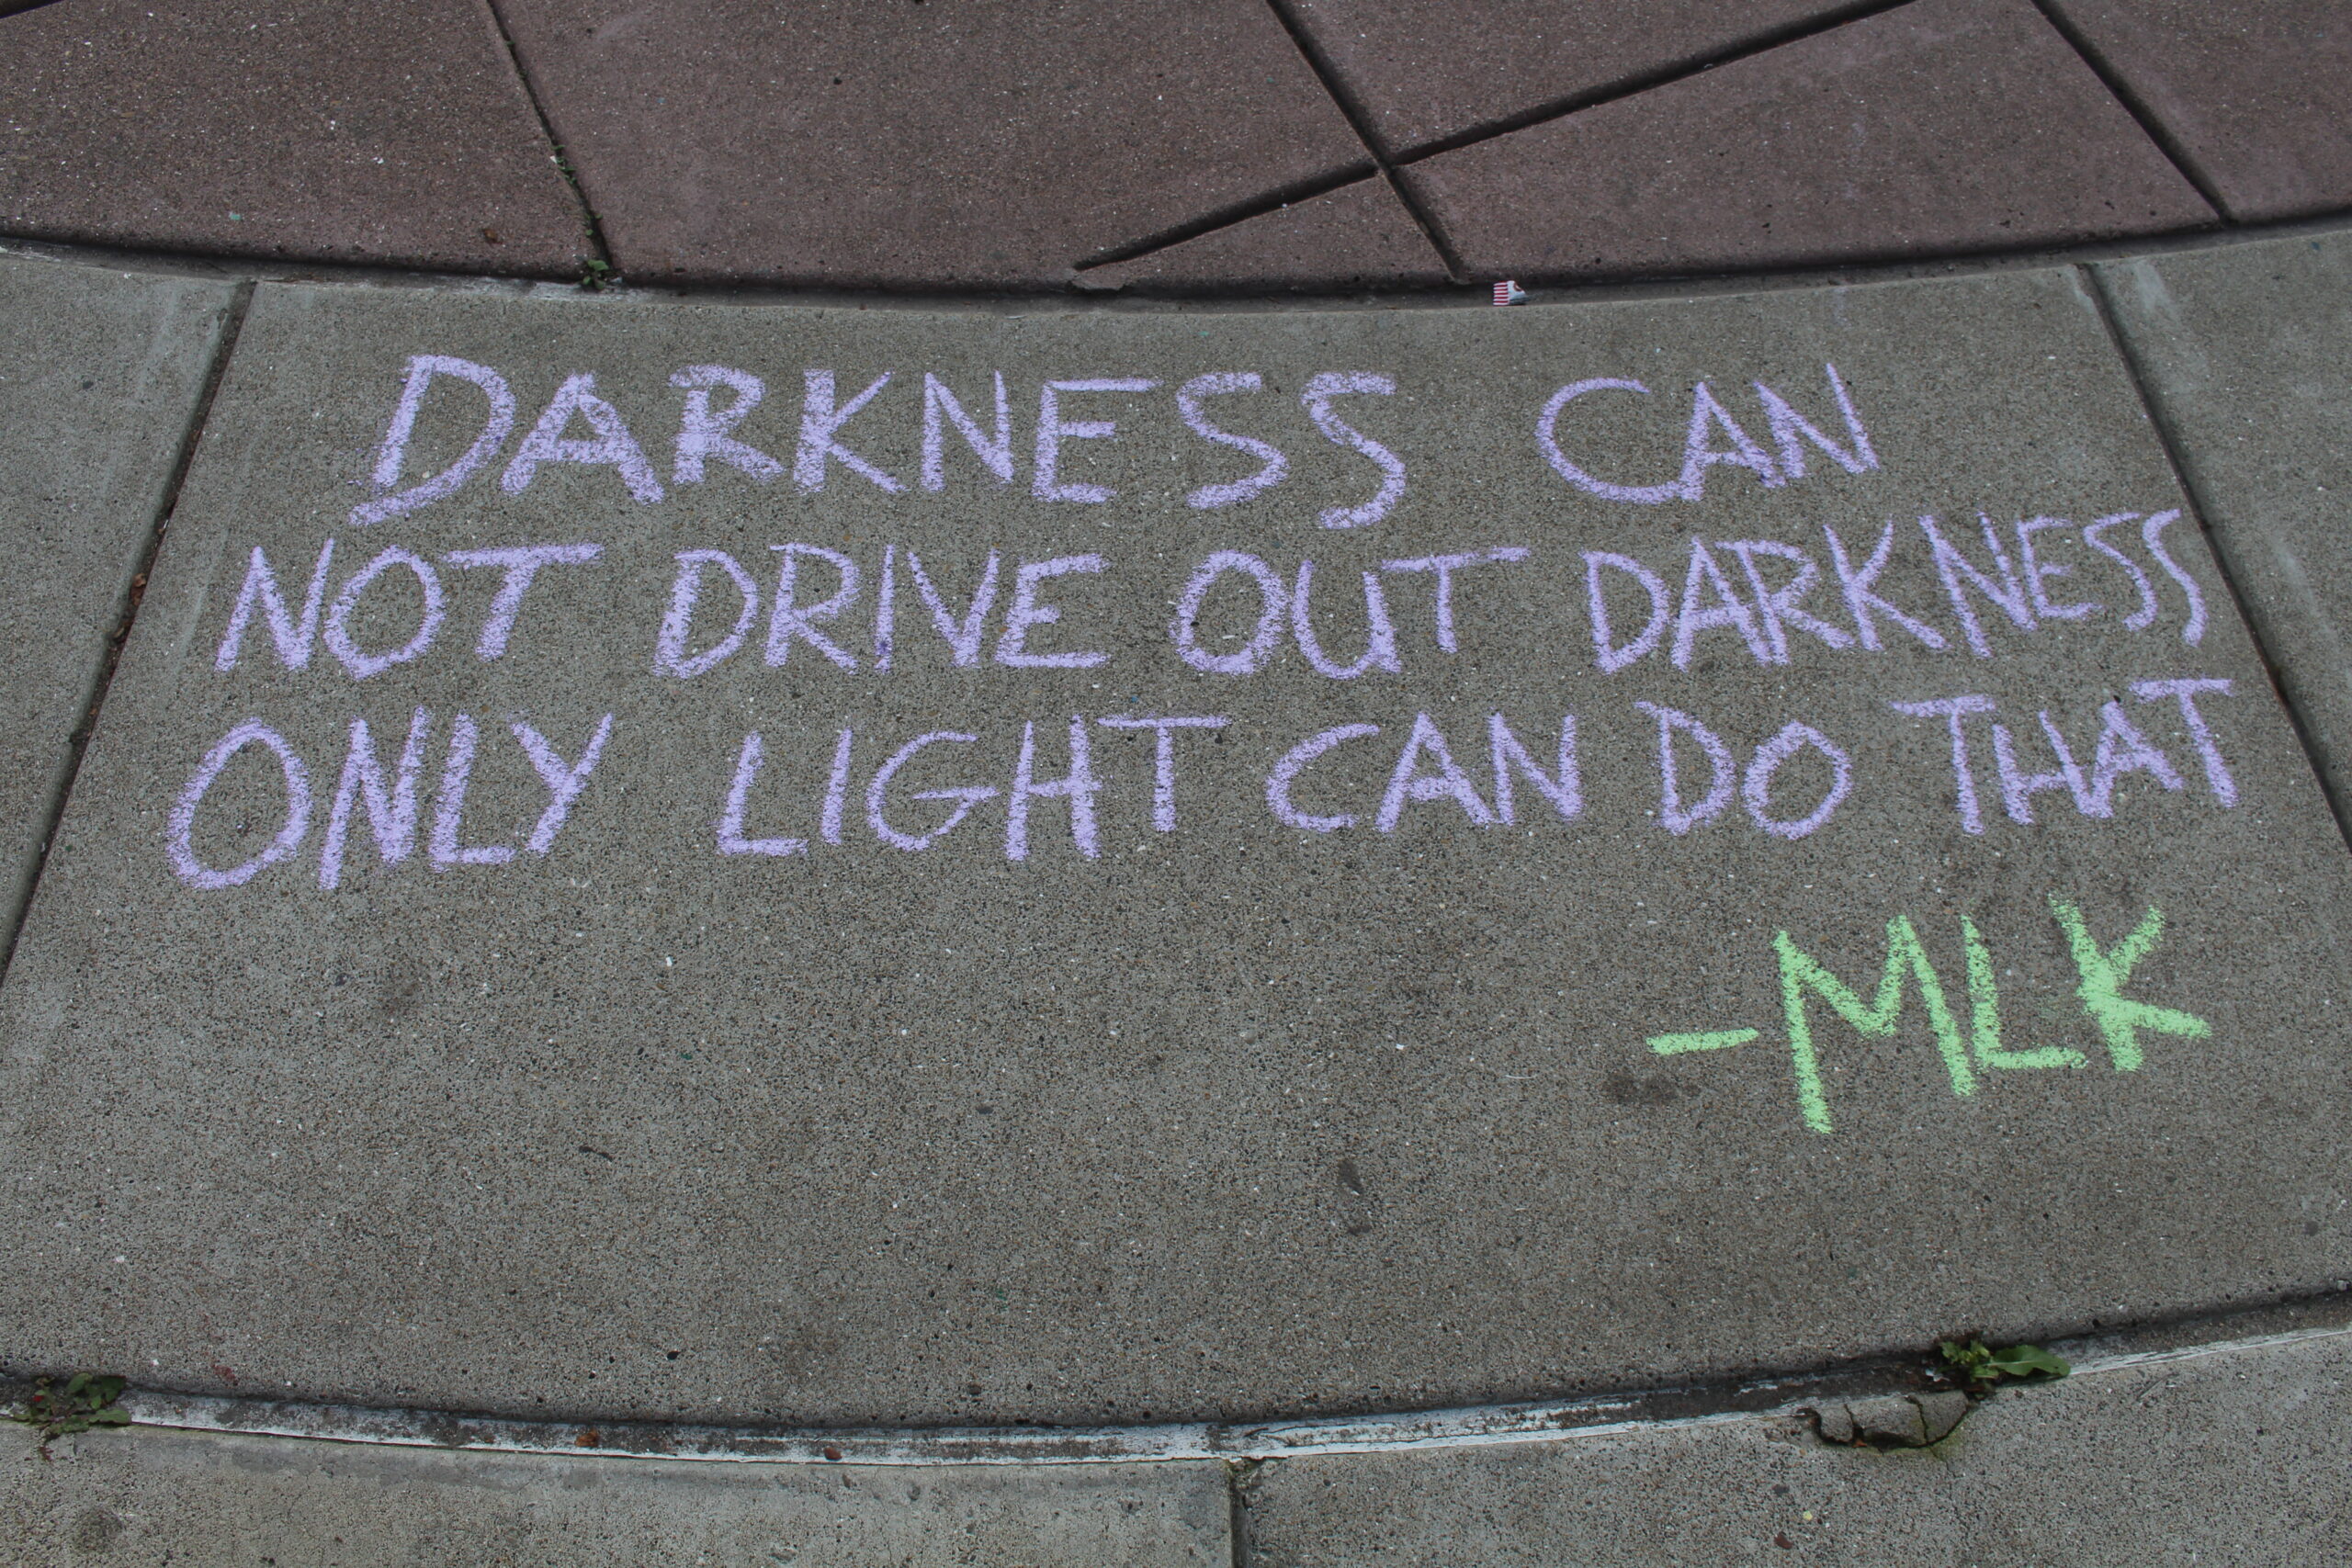 DARKNESS CAN
NOT DRIVE OUT DARKNESS
ONLY LIGHT CAN DO THAT
-MLK